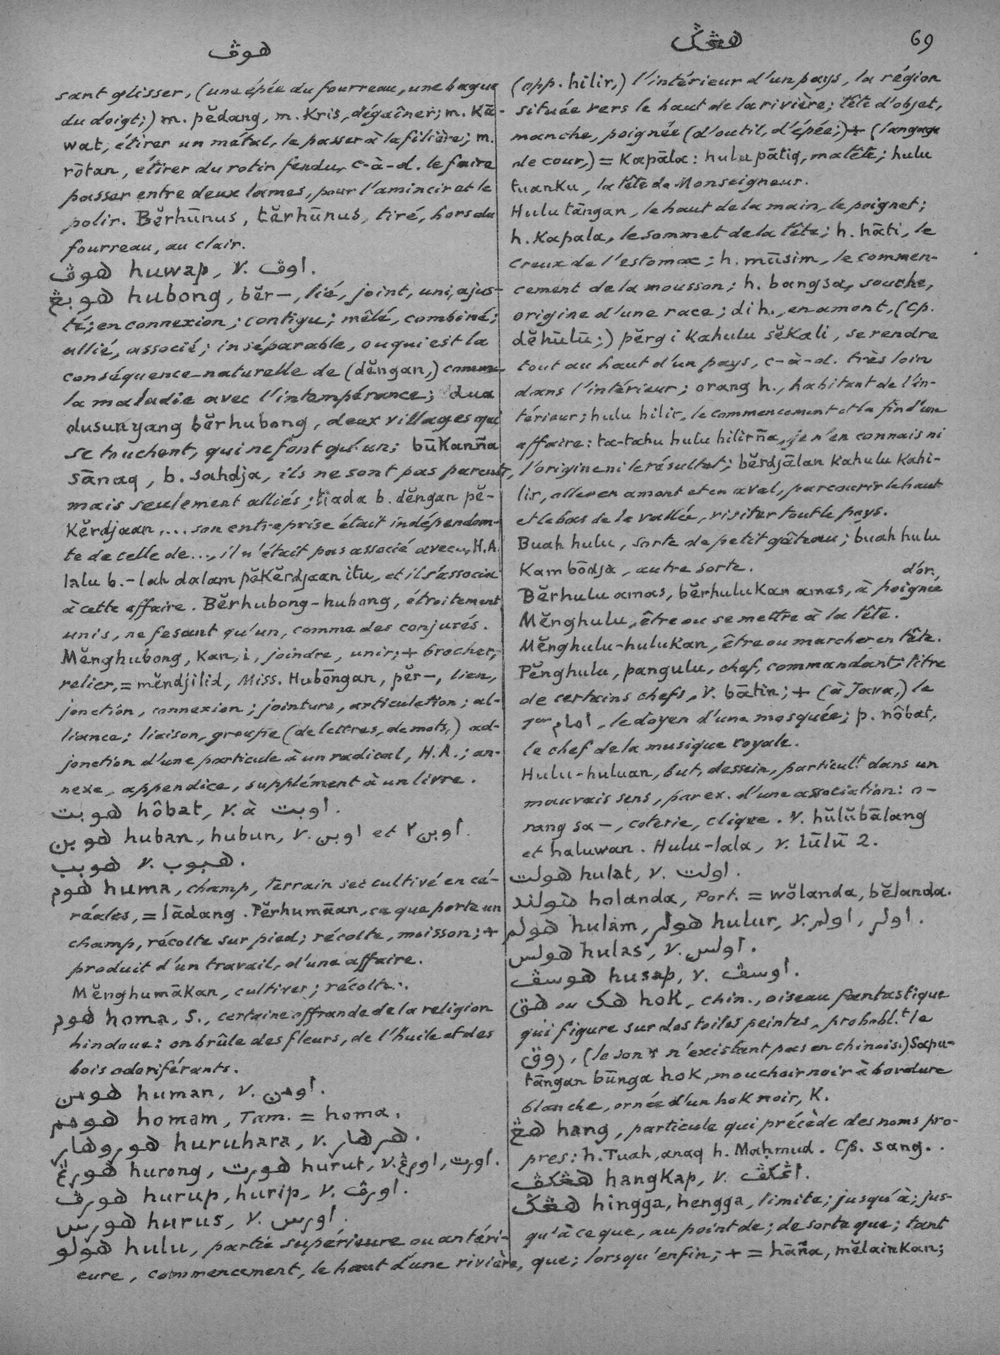 هوڤ
هڠݢ
69
sant glisser, (une épée du fourreau, une bague
du doigt;) m. pĕdang, m. Kris, dégaîner; m. Kā-
wat, étirer un métal, le passer à la filière; m.
rōtan, étirer du rotin fendu, c-à-d. le faire
passer entre deux lames, pour l'amincir et le
polir. Bĕrhūnus, tĕrhūnus, tiré, hors du
fourreau, au clair.
هووڤ huwap, v. اوڤ.
هوبڠ hubong, bĕr—, lié, joint, uni, ajus-
té; en connexion; contigu; mêlé, combiné;
allié, associé; inséparable, ou qui est la
conséquence naturelle de (dĕngan,) comme
la maladie avec l'intempérance; dua
dusun yang bĕrhubong, deux villages qui
se touchent, qui ne font qu'un; būkanña
sānaq, b. sahdja, ils ne sont pas parents,
mais seulement alliés; tiada b. dĕngan pĕ-
Kĕrdjaan, ... son entreprise était indépendan-
te de celle de ..., il n'était pas associé avec, H.A.
lalu b.-lah dalam pĕKĕrdjaan itu, et il s'associa
à cette affaire. Bĕrhubong-hubong, étroitement
unis, ne fesant qu'un, comme des conjurés.
Mĕnghubong, Kan, i, joindre, unir; + brocher,
relier, = mĕndjilid, Miss. Hubōngan, pĕr—, lien,
jonction, connexion; jointure, articulation; al-
liance; liaison, groupe (de lettres, de mots,) ad-
jonction d'une particule à un radical, H.A.; an-
nexe, appendice, supplément à un livre.
هوبت hôbat, v. à اوبت.
هوبن huban, hubun, v. اوبن et اوبن ٢.
هوبب v. هبوب.
هوم huma, champ, terrain sec cultivé en cé-
réales, = lādang. Pĕrhumāan, ce que porte un
champ, récolte sur pied; récolte, moisson; +
produit d'un travail, d'une affaire.
Mĕnghumākan, cultiver; récolter.
هوم homa, S., certaine offrande de la religion
hindoue: on brûle des fleurs, de l'huile et des
bois odoriférants.
هومن human, v. اومن.
هومم homam, Tam. = homa.
هوروهار huruhara, v. هرهار.
هورڠ hurong, هورت hurut, v. اورڠ, اورت.
هورڤ hurup, hurip, v. اورڤ.
هورس hurus, v. اورس.
هولو hulu, partie supérieure ou antéri-
eure, commencement, le haut d'une rivière,
(opp. hilir,) l'intérieur d'un pays, la région
située vers le haut de la rivière; tête d'objet,
manche, poignée (d'outil, d'épée;) + (langage
de cour,) = Kapāla: hulu pātiq, ma tête; hulu
tuanKu, la tête de Monseigneur.
Hulu tāngan, le haut de la main, le poignet;
h. Kapala, le sommet de la tête; h. hāti, le
creux de l'estomac; h. mūsim, le commen-
cement de la mousson; h. bangsa, souche,
origine d'une race; di h., en amont, (cp.
dĕhūlū;) pĕrgi Kahulu sĕkali, se rendre
tout au haut d'un pays, c-à-d. très loin
dans l'intérieur; orang h., habitant de l'in-
térieur; hulu hilir, le commencement et la fin d'une
affaire: ta-tahu hulu hilirña, je n'en connais ni
l'origine ni le résultat; bĕrdjālan Kahulu Kahi-
lir, aller en amont et en aval, parcourir le haut
et le bas de la vallée, visiter tout le pays.
Buah hulu, sorte de petit gâteau; buah hulu
Kambōdja, autre sorte.
Bĕrhulu amas, bĕrhuluKan amas, à poignée d'or.
Mĕnghulu, être ou se mettre à la tête.
Mĕnghulu-huluKan, être ou marcher en tête.
Pĕnghulu, pangulu, chef, commandant; titre
de certains chefs, v. bātin; + (à Java,) le
1er امام, le doyen d'une mosquée; p. nôbat,
le chef de la musique royale.
Hulu-huluan, but, dessein, particult dans un
mauvais sens, par ex. d'une association: o-
rang sa—, coterie, clique. v. hŭlŭbālang
et haluwan. Hulu-lala, v. lūlū 2.
هولت hulat, v. اولت.
هولند holanda, Port. = wŏlanda, bĕlanda.
هولم hulam, هولر hulur, v. اولم, اولر.
هولس hulas, v. اولس.
هوسڤ husap, v. اوسڤ.
هق ou هک hoK, chin., oiseau fantastique
qui figure sur des toiles peintes, probablt le
روق, (le son r n'existant pas en chinois.) Sapu-
tāngan būnga hoK, mouchoir noir à bordure
blanche, orné d'un hoK noir, K.
هڠ hang, particule qui précède des noms pro-
pres: h. Tuah, anaq h. Maḥmud. Cp. sang.
هڠکڤ hangKap, v. اڠکڤ.
هڠݢ hingga, hengga, limite; jusqu'à; jus-
qu'à ce que, au point de; de sorte que; tant
que; lorsqu'enfin; + = hāña, mĕlainKan;